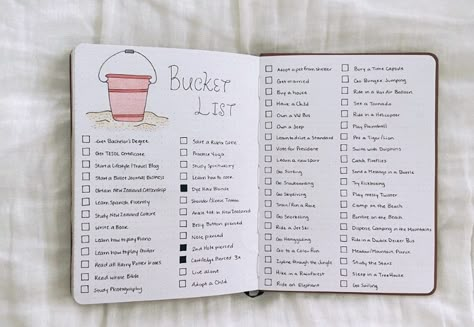 Bucket
List
Get Bachelor's Degree
Get TESOL Certificate
Start a Lifestyle/Travel Blog
Start a Bullet Journal Business
Obtain New Zealand Citizenship
Learn Spanish Fluently
Study New Zealand Culture
Write a Book
Learn how to play Piano
Learn how to play Guitar
Read all Harry Potter Books
Read whole Bible
Study Photography
Save a Life
Practice Yoga
Study Spirituality
Learn how to
Dye New Blonde
in New Zealand
Belly Button pierced
Nose pierced
2nd Hole pierced
Cartilage Pierced 3x
Live alone
Adopt a Child
Adopt a pet from Shelter
Get married
Buy a house
Have a Child
Own a VW Bus
Own a Jeep
Learn to drive a Standard
Vote for President
Learn a new
Go Surfing
Go Snowboarding
Go Skydiving
Train/Run a Race
Go Snorkeling
Ride a Jet Ski
Go Hanggliding
Go to a Color Run
Zipline through the Jungle
Hike in a Rainforest
Ride an Elephant
Bury a Time Capsule
Go Bungee Jumping
Ride in a Hot Air Balloon
See a Tornado
Ride in a Helicopter
Play Paintball
Pet a Tiger/Lion
Swim with Dolphins
Catch Fireflies
Send a Message in a Bottle
Try Kickboxing
Play messy Twister
Camp on the Beach
Bonfire on the Beach
Disperse Camping in the Mountains
Ride in a Double Decker Bus
Meadow/Mountain Picnic
Study the Stars
Sleep in a TreeHouse
Go Sailing